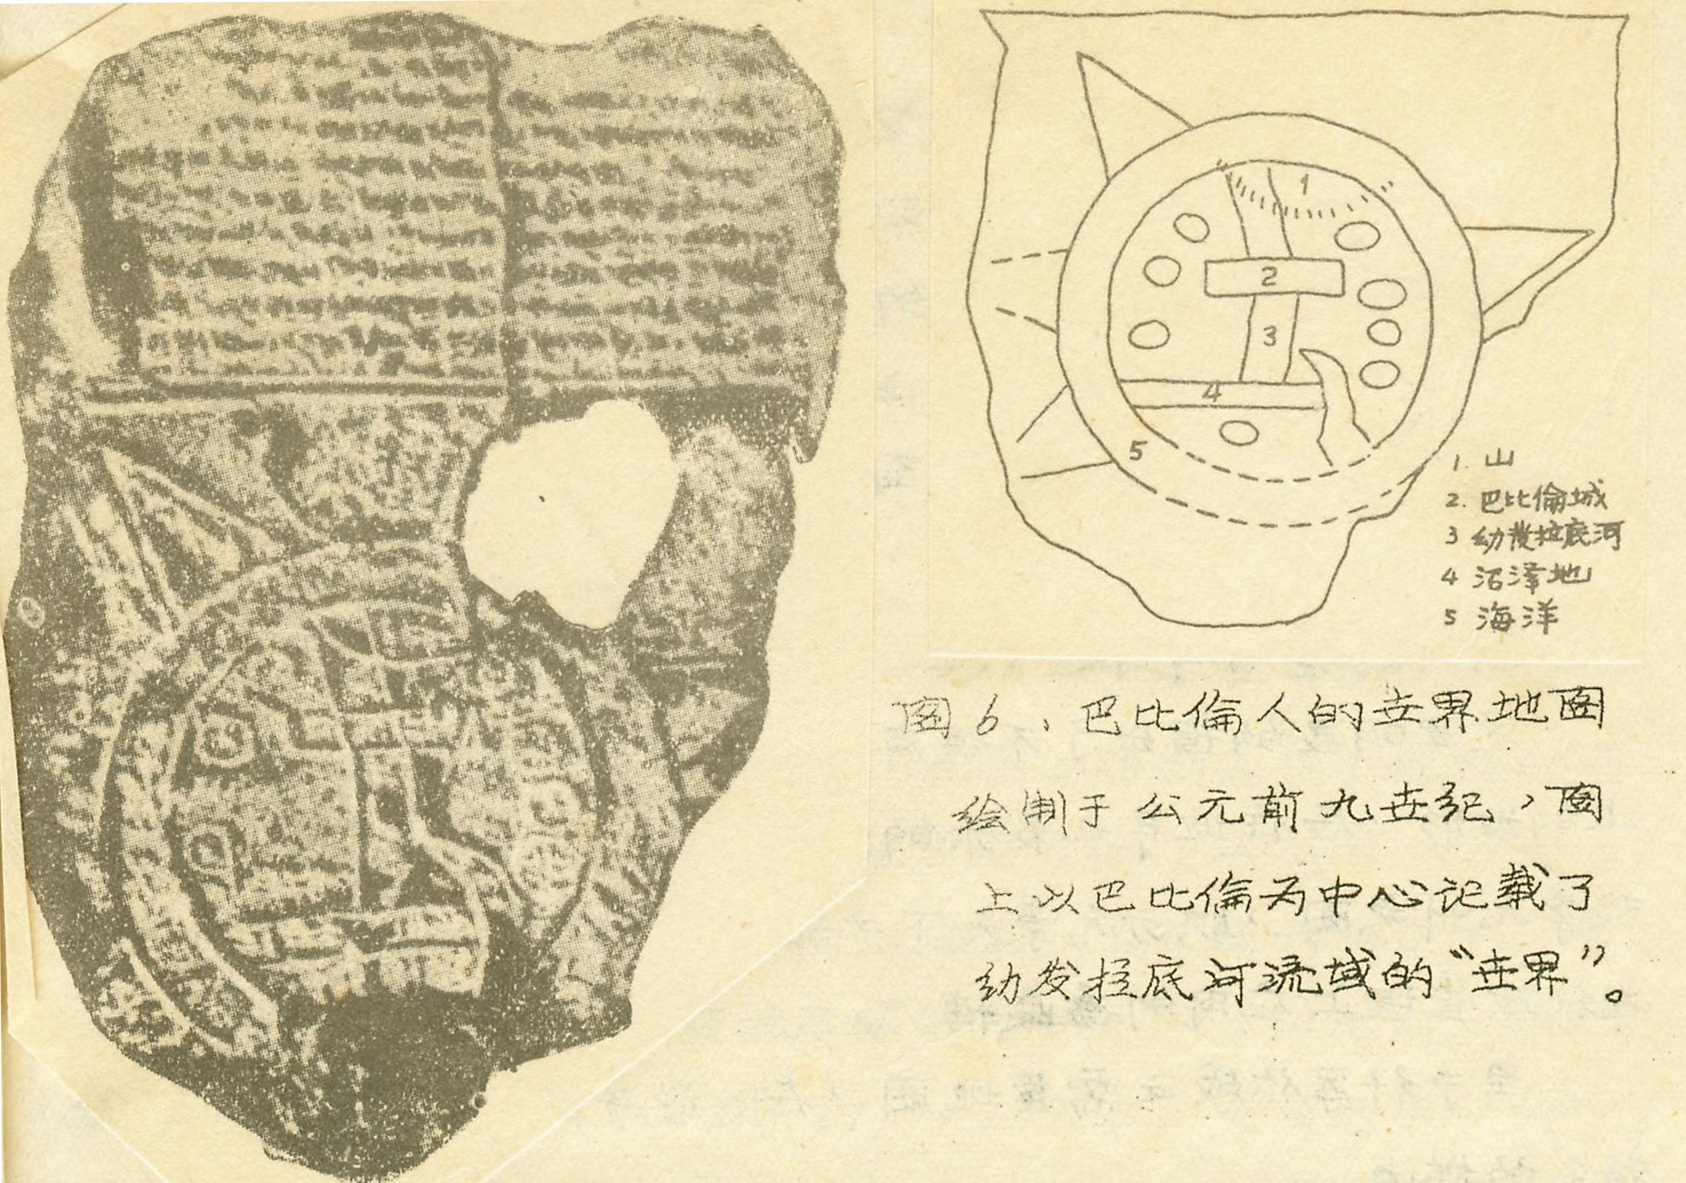 1
2
3
4
5
1. 山
2. 巴比倫城
3 幼發拉底河
4 沼泽地
5 海洋
图6、巴比倫人的世界地图
绘制于公元前九世纪，图
上以巴比倫为中心记载了
幼发拉底河流域的“世界”。